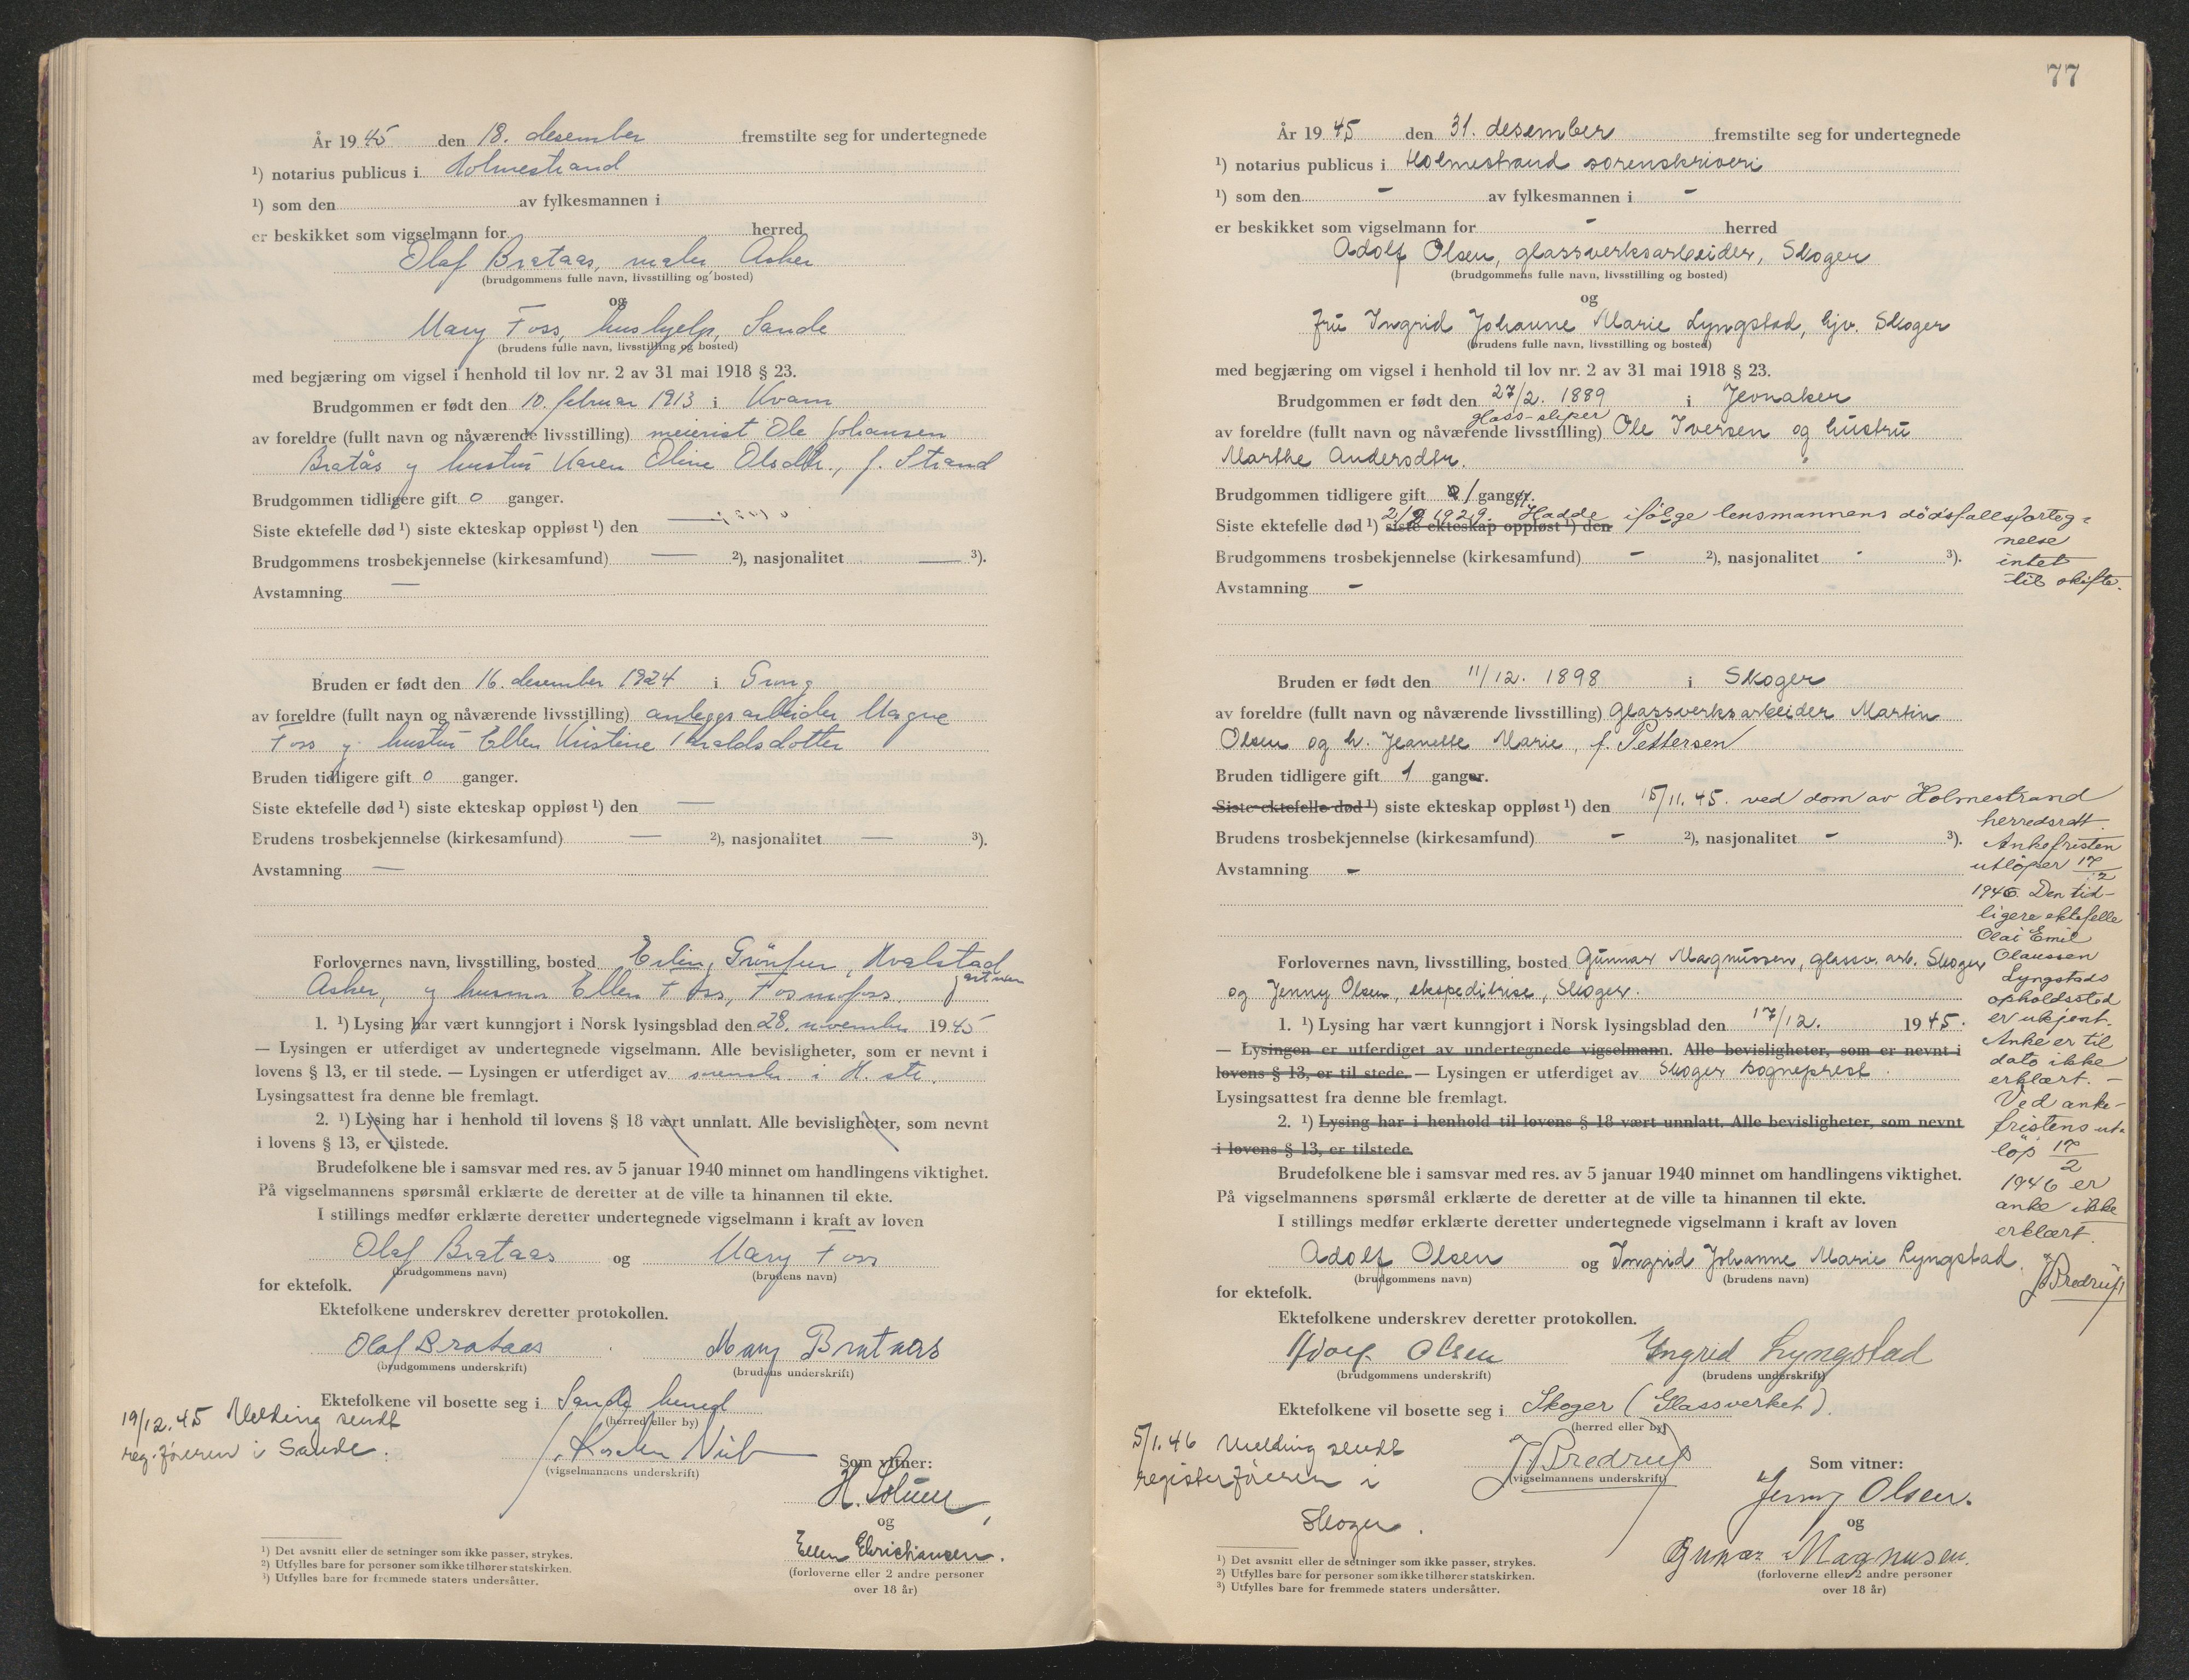 År 19 45 den 18. desember fremstilte seg for undertegnede
¹) notarius publicus i Holmestrand
¹) som den av fylkesmannen i
er beskikket som vigselmann for herred
Olaf Brataas, maler Asker
(brudgommens fulle navn, livsstilling og bosted)
og
Mary Foss, hushjelp, Sande
(brudens fulle navn, livsstilling og bosted)
med begjæring om vigsel i henhold til lov nr. 2 av 31 mai 1918 § 23.
Brudgommen er født den 10. februar 1913 i Kvam
av foreldre (fullt navn og nåværende livsstilling) meierist Ole Johansen
Bratås og hustru Karen Oline Olsdtr., f. Strand
Brudgommen tidligere gift 0 ganger.
Siste ektefelle død ¹) siste ekteskap oppløst ¹) den —
Brudgommens trosbekjennelse (kirkesamfund) — ²), nasjonalitet — ³).
Avstamning —
Bruden er født den 16. desember 1924 i Grong
av foreldre (fullt navn og nåværende livsstilling) anleggsarbeider Magne
Foss og hustru Ellen Kristine Haraldsdotter
Bruden tidligere gift 0 ganger.
Siste ektefelle død ¹) siste ekteskap oppløst ¹) den —
Brudens trosbekjennelse (kirkesamfund) — ²), nasjonalitet — ³).
Avstamning —
Forlovernes navn, livsstilling, bosted Hvalstad
gartner
Asker, og husmor Ellen Foss, Fosmofoss.
1. ¹) Lysing har vært kunngjort i Norsk lysingsblad den 28. november 1945
— Lysingen er utferdiget av undertegnede vigselmann. Alle bevisligheter, som er nevnt i
lovens § 13, er til stede. — Lysingen er utferdiget av sorenskr. i H.str.
Lysingsattest fra denne ble fremlagt.
2. ¹) Lysing har i henhold til lovens § 18 vært unnlatt. Alle bevisligheter, som nevnt
i lovens § 13, er tilstede.
Brudefolkene ble i samsvar med res. av 5 januar 1940 minnet om handlingens viktighet.
På vigselmannens spørsmål erklærte de deretter at de ville ta hinannen til ekte.
I stillings medfør erklærte deretter undertegnede vigselmann i kraft av loven
Olaf Brataas og Mary Foss
(brudgommens navn) (brudens navn)
for ektefolk.
Ektefolkene underskrev deretter protokollen.
Olaf Brataas Mary Brataas
(brudgommens underskrift) (brudens underskrift)
Ektefolkene vil bosette seg i Sande herred
(herred eller by)
19/12.45 Melding sendt
reg.föreren i Sande.
(vigselmannens underskrift)
Som vitner:
H. Solum
og
Ellen
(forloverne eller 2 andre personer
over 18 år)
¹) Det avsnitt eller de setninger som ikke passer, strykes.
²) Utfylles bare for personer som ikke tilhører statskirken.
³) Utfylles bare for fremmede staters undersåtter.
77
År 19 45 den 31. desember fremstilte seg for undertegnede
¹) notarius publicus i Holmestrand sorenskriveri
¹) som den - av fylkesmannen i -
er beskikket som vigselmann for - herred
Adolf Olsen, glassverksarbeider, Skoger
(brudgommens fulle navn, livsstilling og bosted)
og
fru Ingrid Johanne Marie Lyngstad, hjv. Skoger
(brudens fulle navn, livsstilling og bosted)
med begjæring om vigsel i henhold til lov nr. 2 av 31 mai 1918 § 23.
Brudgommen er født den 27/2. 1889 i Jevnaker
glass-sliper
av foreldre (fullt navn og nåværende livsstilling) Ole Iversen og hustru
Marthe Andersdtr.
Brudgommen tidligere gift 1 ganger.
Siste ektefelle død ¹) siste ekteskap oppløst ¹) den 2/9 1929. Hadde ifölge lensmannens dödsfallsforteg-
nelse
intet
til skifte.
Brudgommens trosbekjennelse (kirkesamfund) - ²), nasjonalitet - ³).
Avstamning -
Bruden er født den 11/12. 1898 i Skoger
av foreldre (fullt navn og nåværende livsstilling) Glassverksarbeider Martin
Olsen og h. Jeanette Marie, f. Pettersen
Bruden tidligere gift 1 ganger.
Siste ektefelle død ¹) siste ekteskap oppløst ¹) den 15/11.45. ved dom av Holmestrand
herredsrett.
Ankefristen
utlöper 17/2
1946. Den tid-
ligere ektefelle
Olai Emil
Olaussen
Lyngstads
opholdssted
er ukjent.
Anke er til
dato ikke
erklært. –
Ved anke-
fristens ut-
löp 17/2
1946 er
anke ikke
erklært.
JBredrup
Brudens trosbekjennelse (kirkesamfund) - ²), nasjonalitet - ³).
Avstamning -
Forlovernes navn, livsstilling, bosted Gunnar Magnussen, glassv. arb. Skoger
og Jenny Olsen, ekspeditrise, Skoger.
1. ¹) Lysing har vært kunngjort i Norsk lysingsblad den 17/12. 1945.
— Lysingen er utferdiget av undertegnede vigselmann. Alle bevisligheter, som er nevnt i
lovens § 13, er til stede. — Lysingen er utferdiget av Skoger sogneprest.
Lysingsattest fra denne ble fremlagt.
2. ¹) Lysing har i henhold til lovens § 18 vært unnlatt. Alle bevisligheter, som nevnt
i lovens § 13, er tilstede.
Brudefolkene ble i samsvar med res. av 5 januar 1940 minnet om handlingens viktighet.
På vigselmannens spørsmål erklærte de deretter at de ville ta hinannen til ekte.
I stillings medfør erklærte deretter undertegnede vigselmann i kraft av loven
Adolf Olsen og Ingrid Johanne Marie Lyngstad.
(brudgommens navn) (brudens navn)
for ektefolk.
Ektefolkene underskrev deretter protokollen.
Adolf Olsen Ingrid Lyngstad
(brudgommens underskrift) (brudens underskrift)
Ektefolkene vil bosette seg i Skoger (Glassverket).
(herred eller by)
5/1.46 Melding sendt
registerföreren i
Skoger.
JBredrup
(vigselmannens underskrift)
Som vitner:
Jenny Olsen.
og
Gunnar Magnusen.
(forloverne eller 2 andre personer
over 18 år)
¹) Det avsnitt eller de setninger som ikke passer, strykes.
²) Utfylles bare for personer som ikke tilhører statskirken.
³) Utfylles bare for fremmede staters undersåtter.